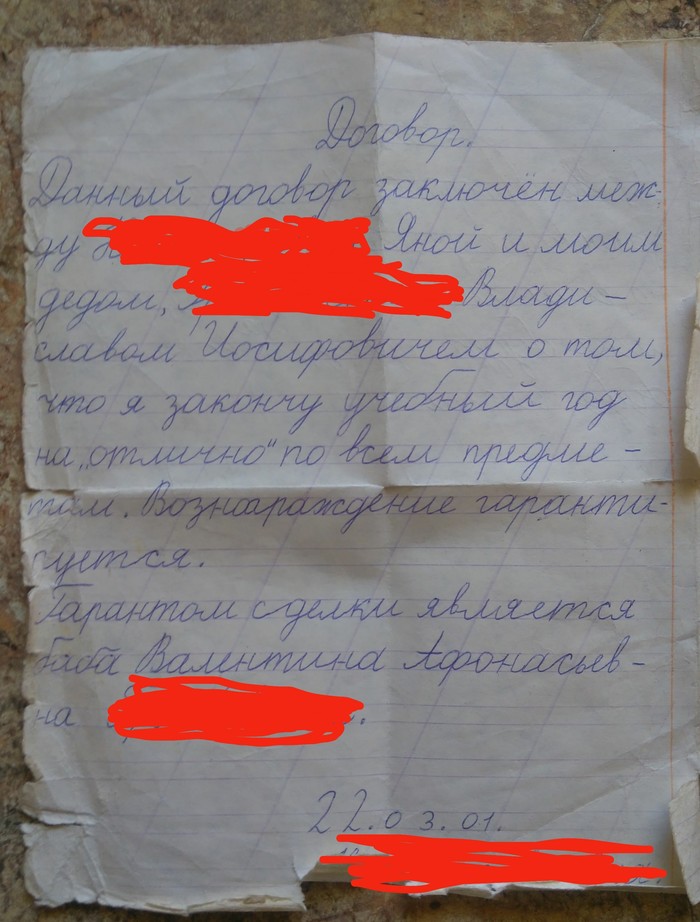 Договор.
Данный договор заключён меж-
ду Яной и моим
дедом, Влади-
славом Иосифовичем о том,
что я закончу учебный год
на „отлично" по всем предме-
там. Вознаграждение гаранти-
руется.
Гарантом сделки является
баба Валентина Афонасьев-
на .
22.03.01.